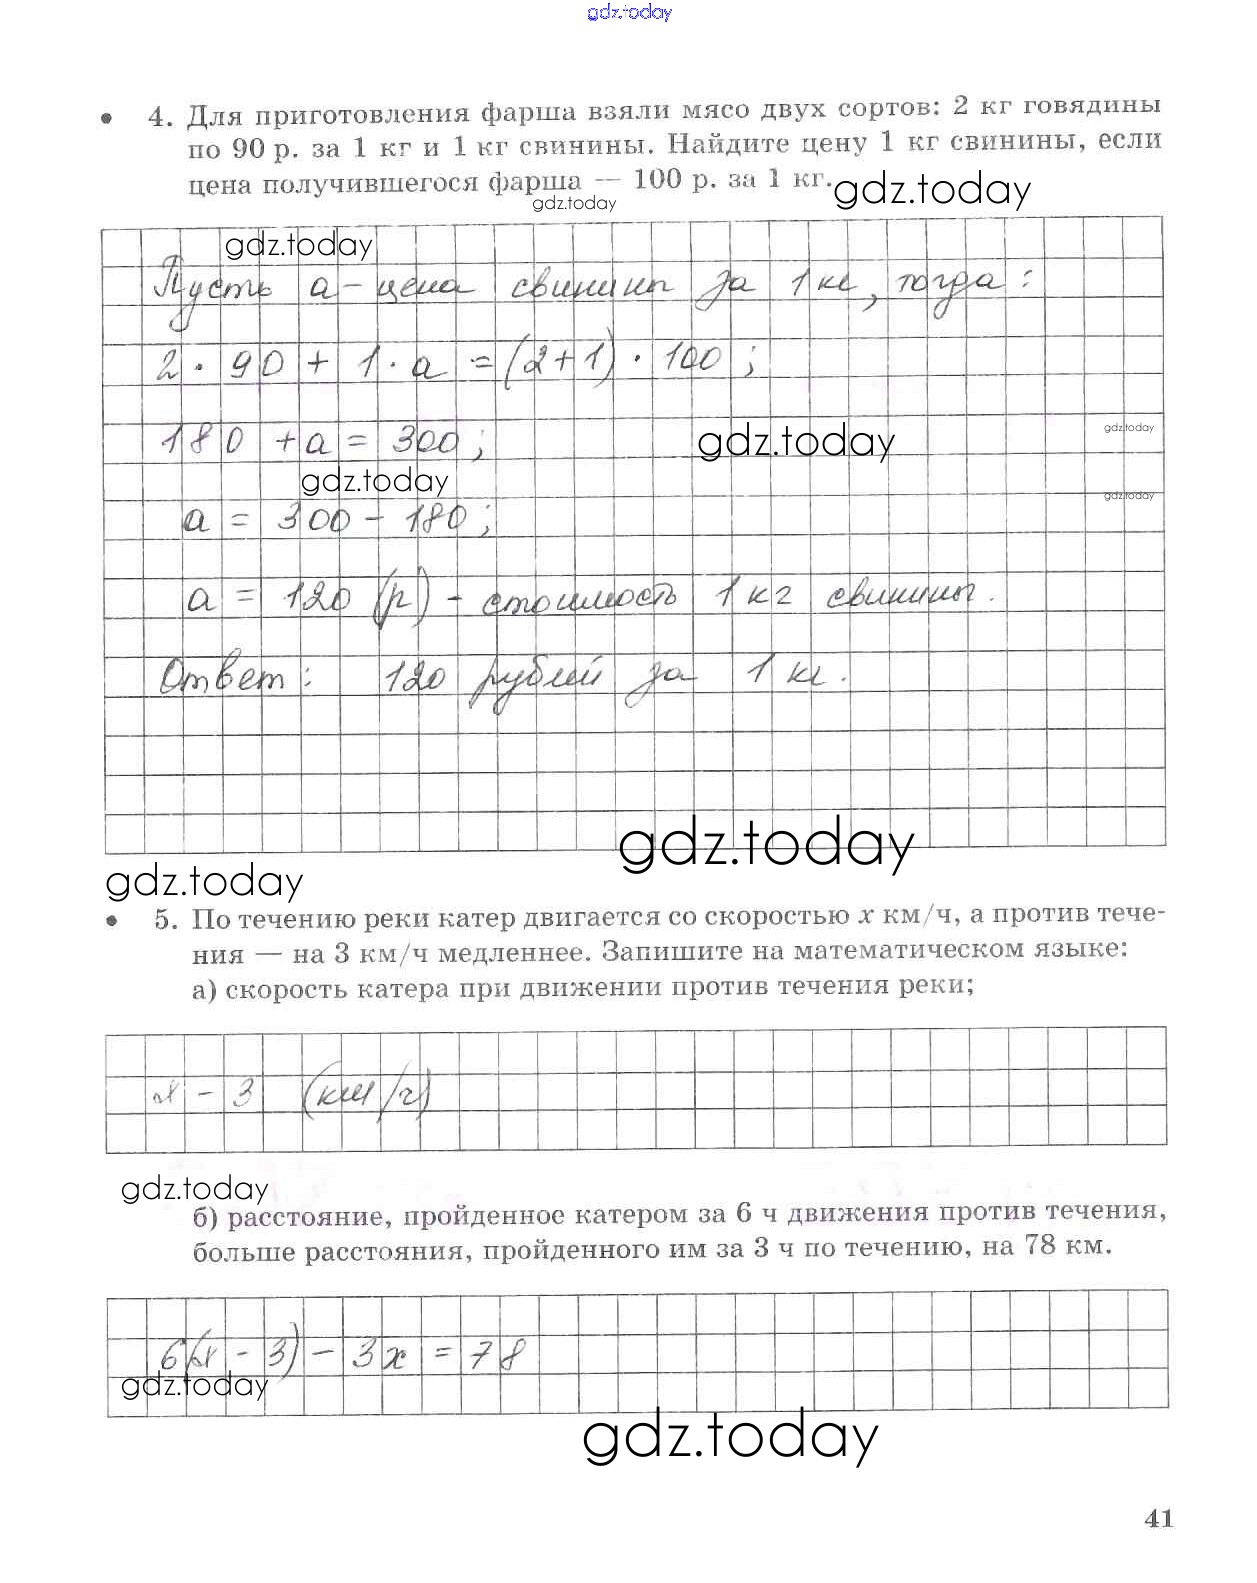 gdz.today
• 4. Для приготовления фарша взяли мясо двух сортов: 2 кг говядины
по 90 р. за 1 кг и 1 кг свинины. Найдите цену 1 кг свинины, если
цена получившегося фарша — 100 р. за 1 кг.
gdz.today
gdz.today
gdz.today
Пусть а - цена свинины за 1 кг, тогда:
2 · 90 + 1 · а = (2+1) · 100;
gdz.today
180 + а = 300;
gdz.today
gdz.today
gdz.today
а = 300 - 180;
а = 120 (р) - стоимость 1 кг свинины.
Ответ: 120 рублей за 1 кг.
gdz.today
gdz.today
• 5. По течению реки катер двигается со скоростью x км/ч, а против тече-
ния — на 3 км/ч медленнее. Запишите на математическом языке:
а) скорость катера при движении против течения реки;
x - 3 (км/ч)
gdz.today
б) расстояние, пройденное катером за 6 ч движения против течения,
больше расстояния, пройденного им за 3 ч по течению, на 78 км.
6(x - 3) - 3x = 78
gdz.today
gdz.today
41